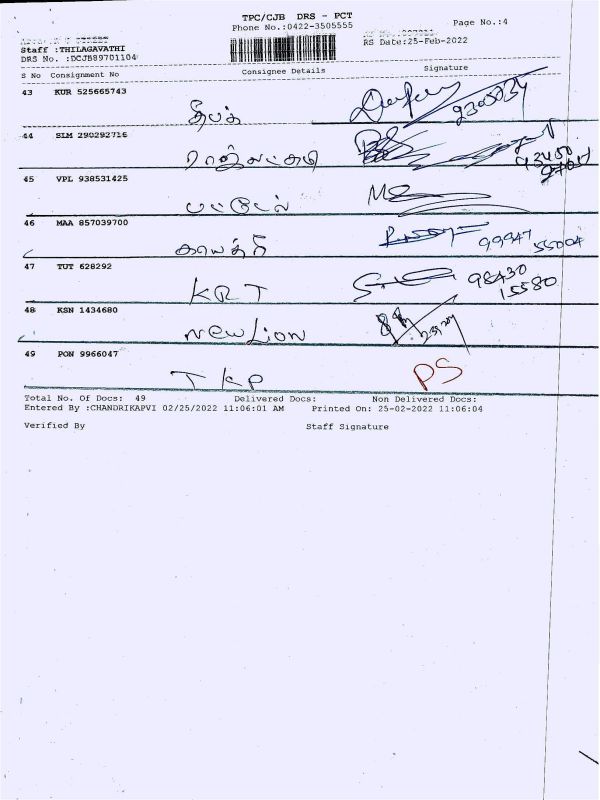 TPC/CJB DRS - PCT
Page No.:4
Phone No.:0422-3505555
Staff :THILAGAVATHI
RS Date:25-Feb-2022
DRS No. :DCJB89701104
S No Consignment No Consignee Details Signature
43 KUR 525665743
தீபக்
44 SLM 290292716
ராஜலட்சுமி
45 VPL 938531425
பட்டேல்
46 MAA 857039700
காயத்ரி
99947
55004
47 TUT 628292
KRT
98430
15580
48 KSN 1434680
New Lion
49 PON 9966047
TKP
PS
Total No. Of Docs: 49 Delivered Docs: Non Delivered Docs:
Entered By :CHANDRIKAPVI 02/25/2022 11:06:01 AM Printed On: 25-02-2022 11:06:04
Verified By Staff Signature